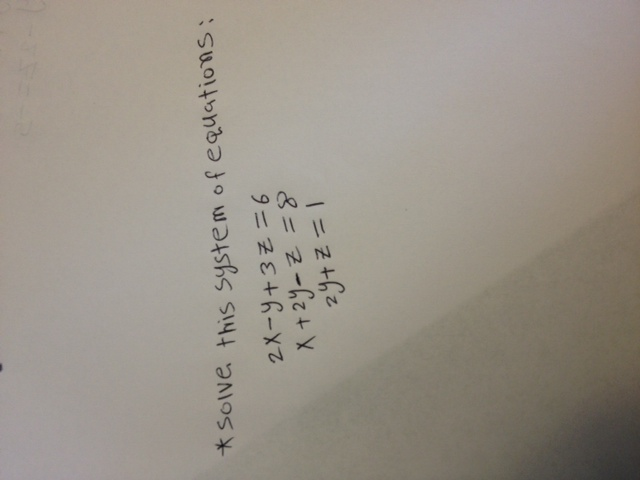 *solve this system of equations:
2x-y+3z=6
x+2y-z=8
2y+z=1